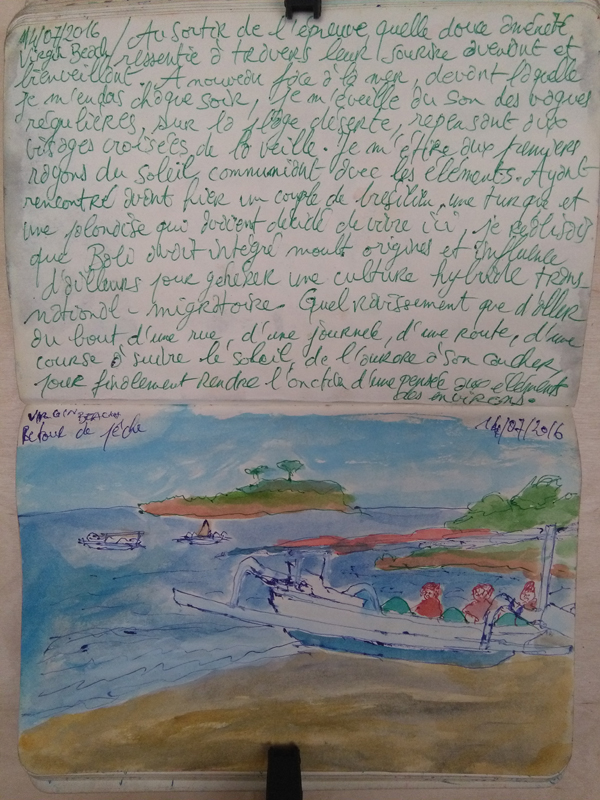 14/07/2016 / Au sortir de l'épreuve quelle douce aménité
Virgin Beach / ressentie à travers leur sourire avenant et
bienveillant. A nouveau face à la mer, devant laquelle
je m'endors chaque soir, je m'éveille au son des vagues
régulières, sur la plage déserte, repensant aux
visages croisées de la veille. Je m'étire aux premiers
rayons du soleil, communiant avec les éléments. Ayant
rencontré avant hier un couple de brésilien, une turque et
une polonaise qui avaient décidé de vivre ici, je réalisais
que Bali avait intégré moult origines et influence
d'ailleurs pour générer une culture hybride trans
national-migratoire. Quel ravissement que d'aller
au bout d'une rue, d'une journée, d'une route, d'une
course à suivre le soleil de l'aurore à son coucher,
pour finalement rendre l'onction d'une pensée aux éléments
des environs.
VIRGIN BEACH
Retour de pêche
14/07/2016